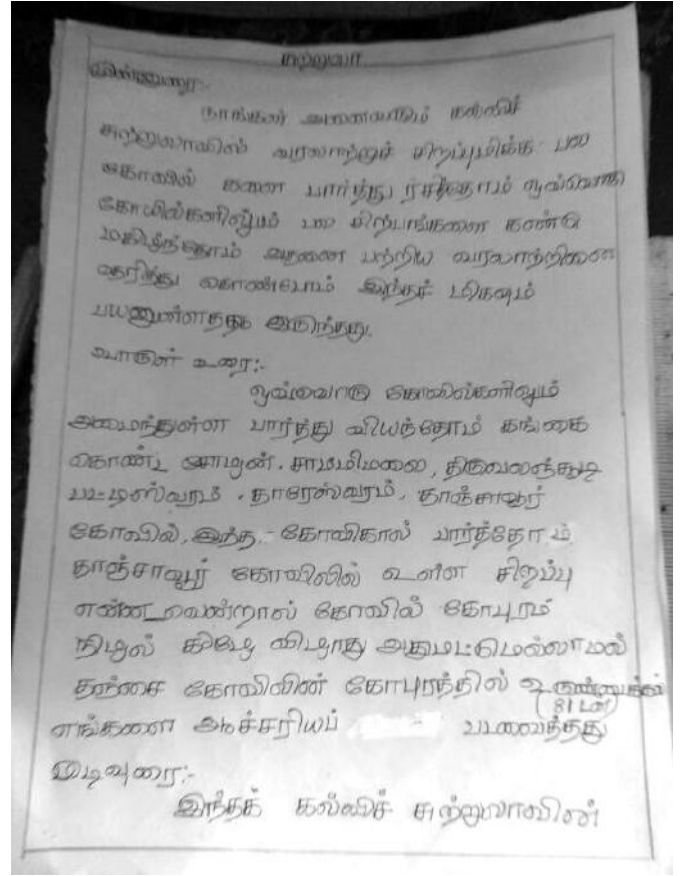 சுற்றுலா
முன்னுரை:-
நாங்கள் அனைவரும் கல்விச்
சுற்றுலாவில் வரலாற்றுச் சிறப்புமிக்க பல
கோவில் களை பார்த்து ரசித்தோம் ஒவ்வொரு
கோயில்களிலும் பல சிற்பங்களை கண்டு
மகிழ்ந்தோம் அதனை பற்றிய வரலாற்றினை
தெரிந்து கொண்டோம் இந்தச் மிகவும்
பயனுள்ளதாக இருந்தது.
பொருள் உரை:-
ஒவ்வொரு கோவில்களிலும்
அமைந்துள்ள பார்த்து வியந்தோம் கங்கை
கொண்ட சோழன். சாமிமலை, திருவலஞ்சுடி
பட்டிஸ்வரம். தாரேஸ்வரம், தாஞ்சாவூர்
கோவில், இந்த கோவிகால் பார்த்தோம்
தாஞ்சாவூர் கோவிலில் உள்ள சிறப்பு
என்ன வென்றால் கோவில் கோபுரம்
நிழல் கீழே விழாது அதுமட்டுமெல்லாமல்
தஞ்சை கோவிலின் கோபுரத்தில்
81 டன்
எங்களை ஆச்சரியப் படவைத்தது
முடிவுரை:-
இந்தக் கல்விச் சுற்றுலாவின்